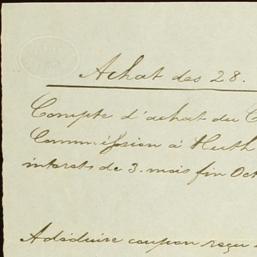 Achat des 28.
Compte d'achat du C
Commission à Huth
intérets de 3. mois fin Oct
A déduire coupon reçu